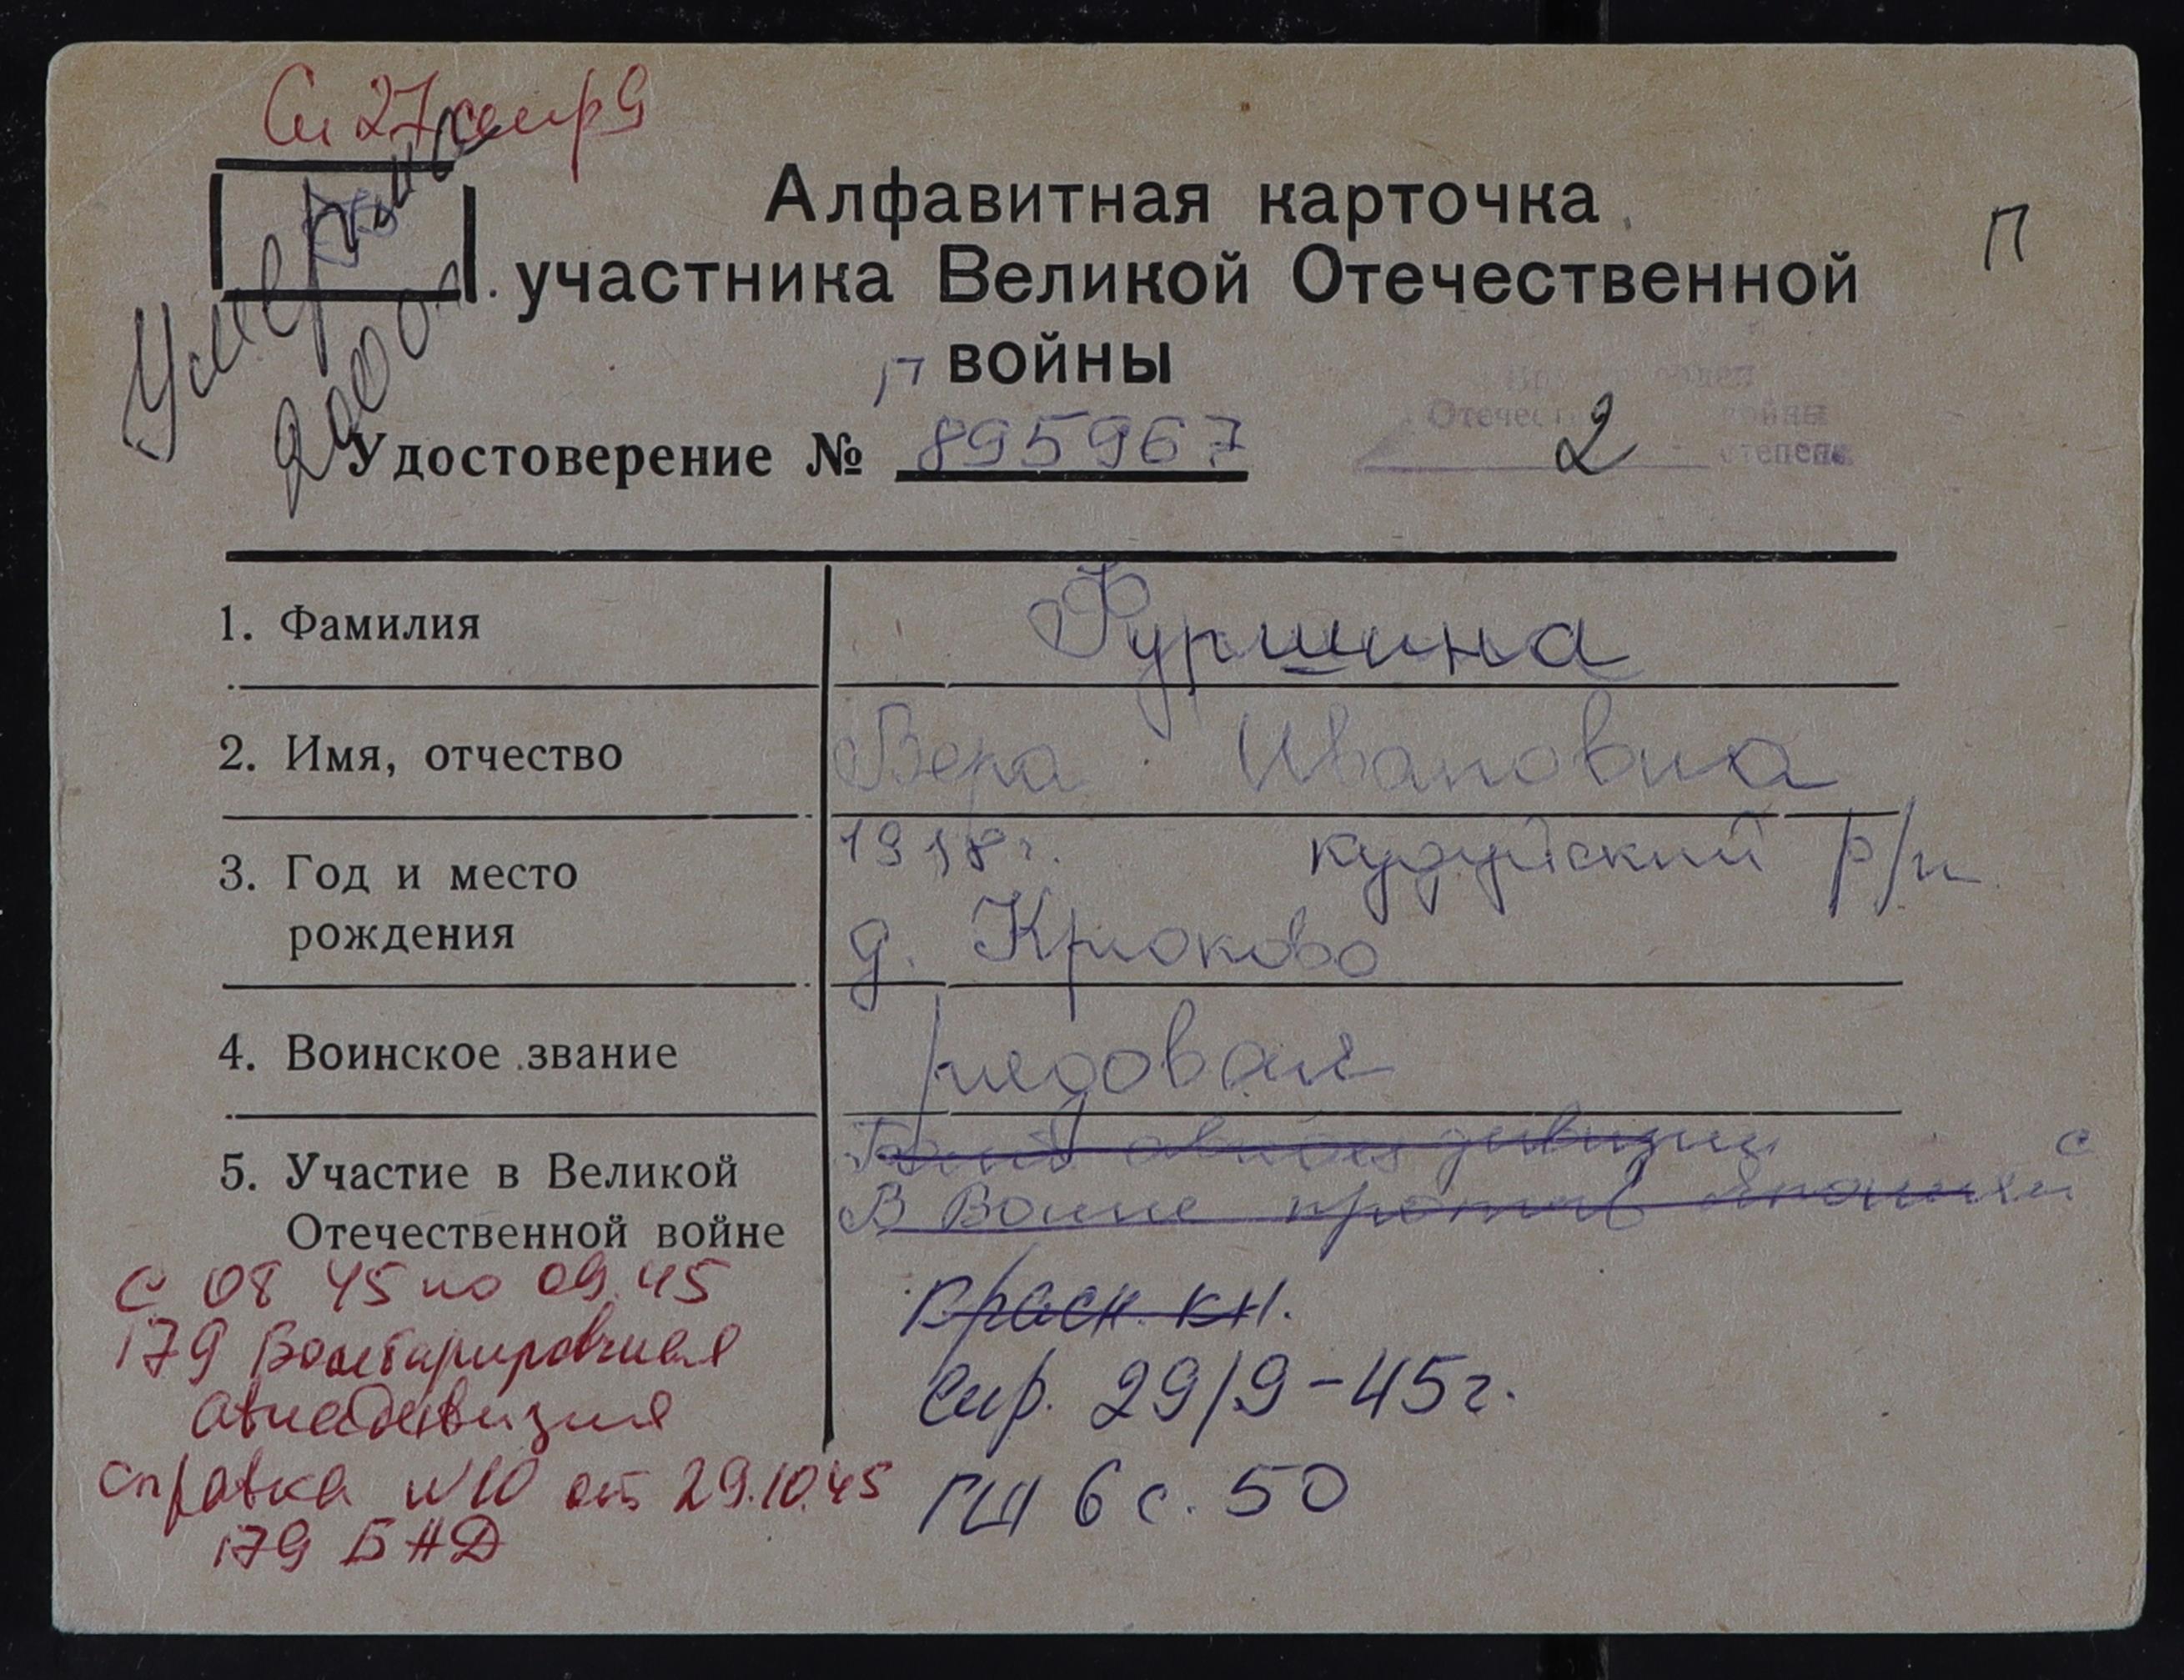 См 27 стр 9
Умерла
2000г
Алфавитная карточка
участника Великой Отечественной
войны
П
П
Удостоверение № 895967
орден
Отечест войны
2 степени
1. Фамилия Фуршина
2. Имя, отчество Вера Ивановна
3. Год и место 1918г. кадуйский р/н
рождения д. Крюково
4. Воинское звание рядовая
5. Участие в Великой дивизии с
Отечественной войне В Войне против Японии
с 08 45 по 09.45 Красн. кн.
179 Бомбардировочная спр. 29/9-45г.
авиадивизия
справка №10 от 29.10.45 ГШ 6 с. 50
179 БАД